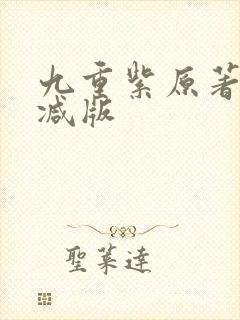 九重紫原著
减版
聖萊達